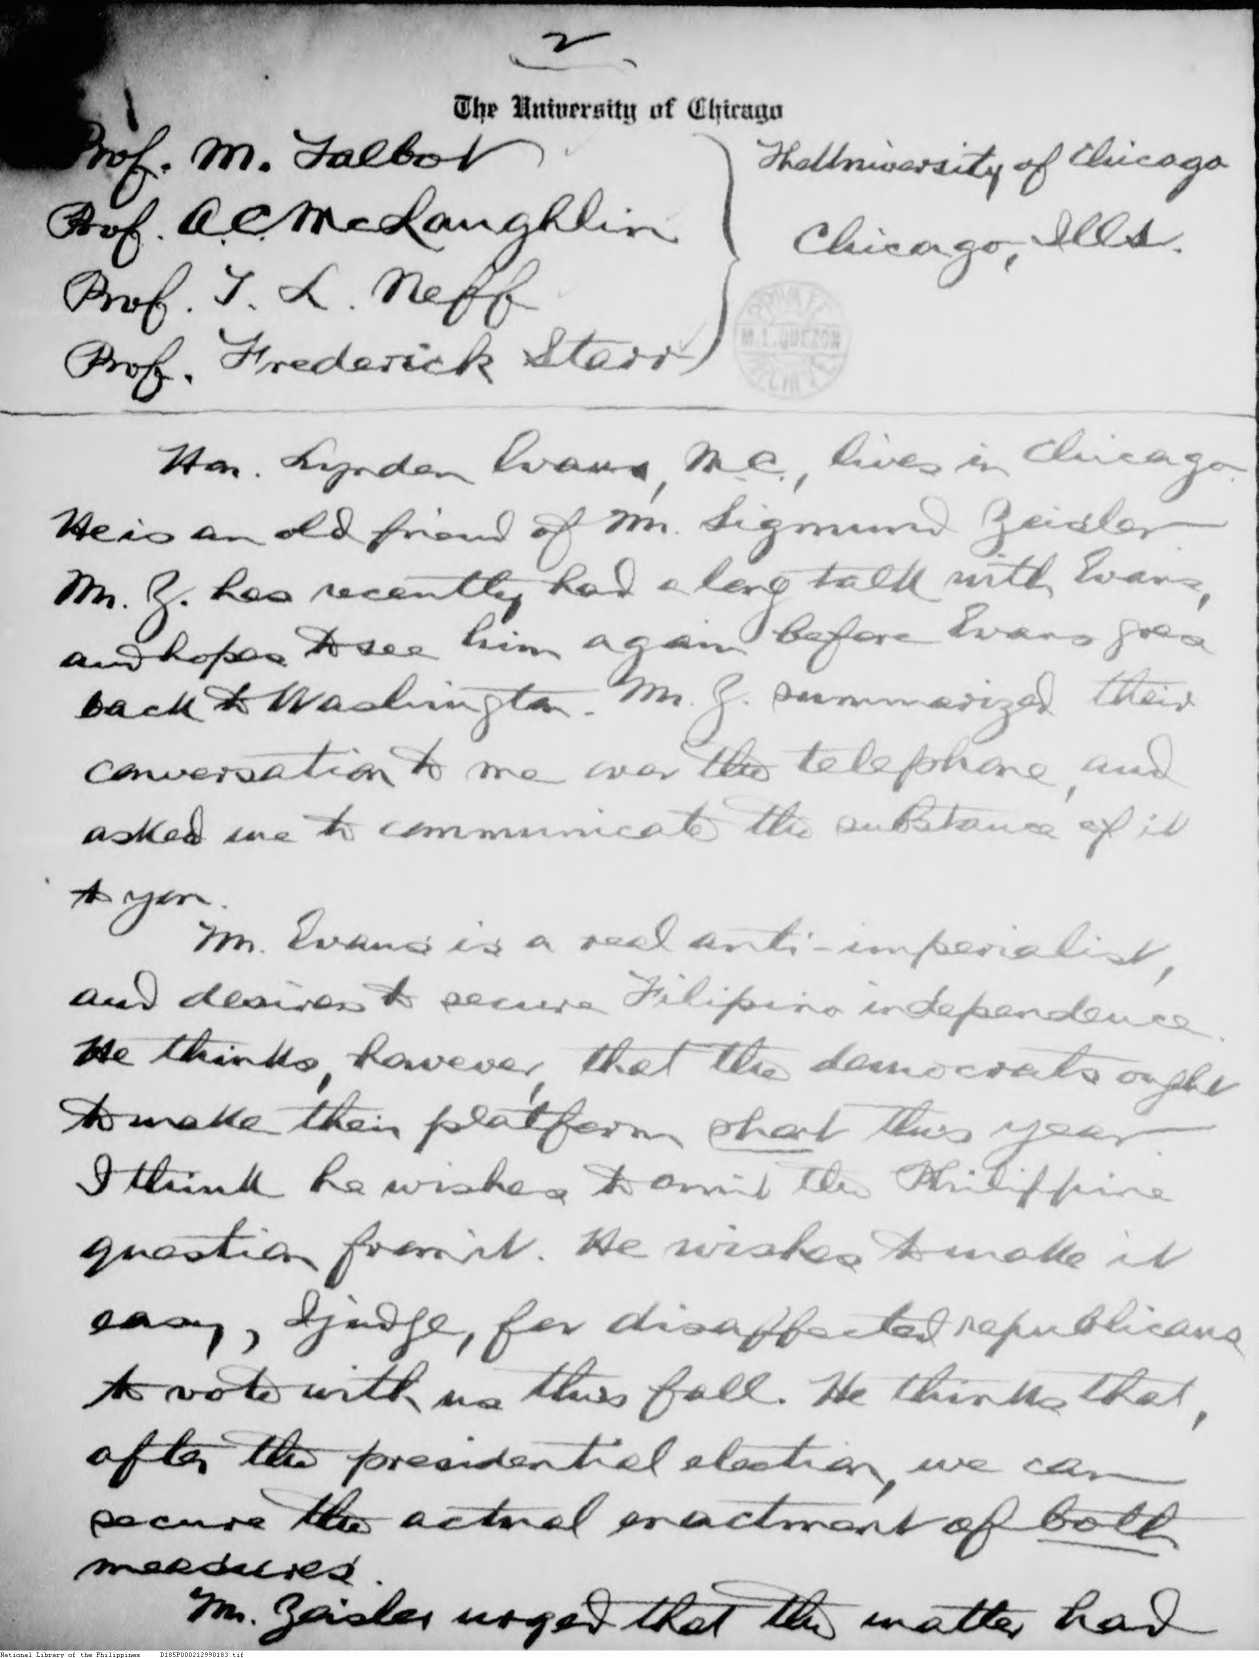 2
The University of Chicago
Prof. M. Talbot
Prof. A.C. McLaughlin
Prof. T. L. Neff
Prof. Frederick Starr
The University of Chicago
Chicago, Ills.
PRIVATE
M. L. QUEZON
Hon. Lynden Evans, M.C., lives in Chicago.
He is an old friend of Mr. Sigmund Zeisler
Mr. Z. has recently had a long talk with Evans,
and hopes to see him again before Evans goes
back to Washington. Mr. Z. summarized their
conversation to me over the telephone, and
asked me to communicate the substance of it
to you.
Mr. Evans is a real anti-imperialist,
and desires to secure Filipino independence.
He thinks, however, that the democrats ought
to make their platform short this year
I think he wishes to omit the Philippine
question from it. He wishes to make it
easy, I judge, for disaffected republicans
to vote with us this fall. He thinks that,
after the presidential election, we can
secure the actual enactment of both
measures.
Mr. Zeisler urged that the matter had
National Library of the Philippines D185P000212990183.tif